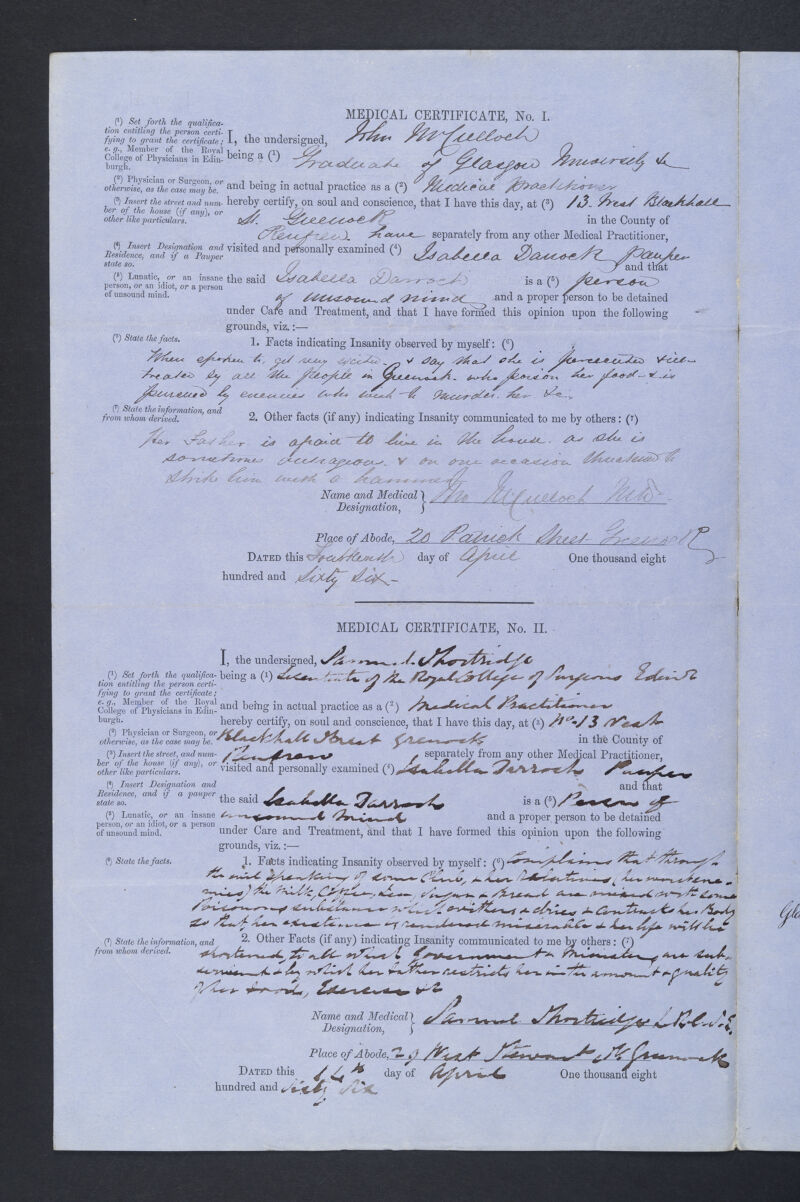 MEDICAL CERTIFICATE, No. I.
(1) Set forth the qualifica-
tion entitling the person certi-
fying to grant the certificate;
e.g., Member of the Royal
College of Physicians in Edin-
burgh.
I, the undersigned, John McCulloch
being a (1) Graduate of Glasgow University &c
(2) Physician or Surgeon, or
otherwise, as the case may be.
and being in actual practice as a (2) Medical Practitioner
(3) Insert the street and num-
ber of the house (if any), or
other like particulars.
hereby certify, on soul and conscience, that I have this day, at (3) 13. West Blackhall
St. Greenock in the County of
Renfrew. have separately from any other Medical Practitioner,
(4) Insert Designation and
Residence, and if a Pauper
state so.
visited and personally examined (4) Isabella Darroch Pauper
and that
(5) Lunatic, or an insane
person, or an idiot, or a person
of unsound mind.
the said Isabella Darroch is a (5) person
of unsound mind and a proper person to be detained
under Care and Treatment, and that I have formed this opinion upon the following
grounds, viz.:—
(6) State the facts.
1. Facts indicating Insanity observed by myself: (6)
When spoken to, get very excited & say that she is persecuted & ill-
treated by all the people in Greenock. who poison her food - & is
pursued by enemies who wish to murder her &c.
(7) State the information, and
from whom derived.
2. Other facts (if any) indicating Insanity communicated to me by others: (7)
Her Father is afraid to live in the house as she is
sometimes outrageous & on one occasion threatened to
strike him with a hammer
Name and Medical
Designation, Jno McCulloch M.D.
Place of Abode, 20 Patrick Street Greenock
DATED this Fourteenth day of April One thousand eight
hundred and Sixty Six -
MEDICAL CERTIFICATE, No. II.
I, the undersigned, Samuel Shortridge
(1) Set forth the qualifica-
tion entitling the person certi-
fying to grant the certificate;
e.g., Member of the Royal
College of Physicians in Edin-
burgh.
being a (1) Licentiate of the Royal College of Surgeons Edinr
and being in actual practice as a (2) Medical Practitioner
hereby certify, on soul and conscience, that I have this day, at (3) No. 13 West
(2) Physician or Surgeon, or
otherwise, as the case may be.
Blackhall Street Greenock in the County of
(3) Insert the street, and num-
ber of the house (if any), or
other like particulars.
Renfrew separately from any other Medical Practitioner,
visited and personally examined (4) Isabella Darroch Pauper
(4) Insert Designation and
Residence, and if a pauper
state so.
and that
the said Isabella Darroch is a (5) Person of
(5) Lunatic, or an insane
person, or an idiot, or a person
of unsound mind.
unsound mind and a proper person to be detained
under Care and Treatment, and that I have formed this opinion upon the following
grounds, viz.:—
(6) State the facts.
1. Facts indicating Insanity observed by myself: (6) Complains that through
the evil speaking of some Club, & her Relatives, (her worst ene-
mies) the Milk, Coffee, Tea, Sugar & Bread are mixed with some
Poisonous substance which withers & dries & contracts her Body
so that her existence is rendered miserable & her life will be
(7) State the information, and
from whom derived.
2. Other Facts (if any) indicating Insanity communicated to me by others: (7)
shortened, to all which Government & Ministers are sub-
servient & by which her Father restricts her in the amount & quality
of her Food, Exercise &c
Name and Medical
Designation, Samuel Shortridge L.R.C.S.E.
Place of Abode, 29 West Stewart St. Greenock
DATED this 14th day of April One thousand eight
hundred and sixty six